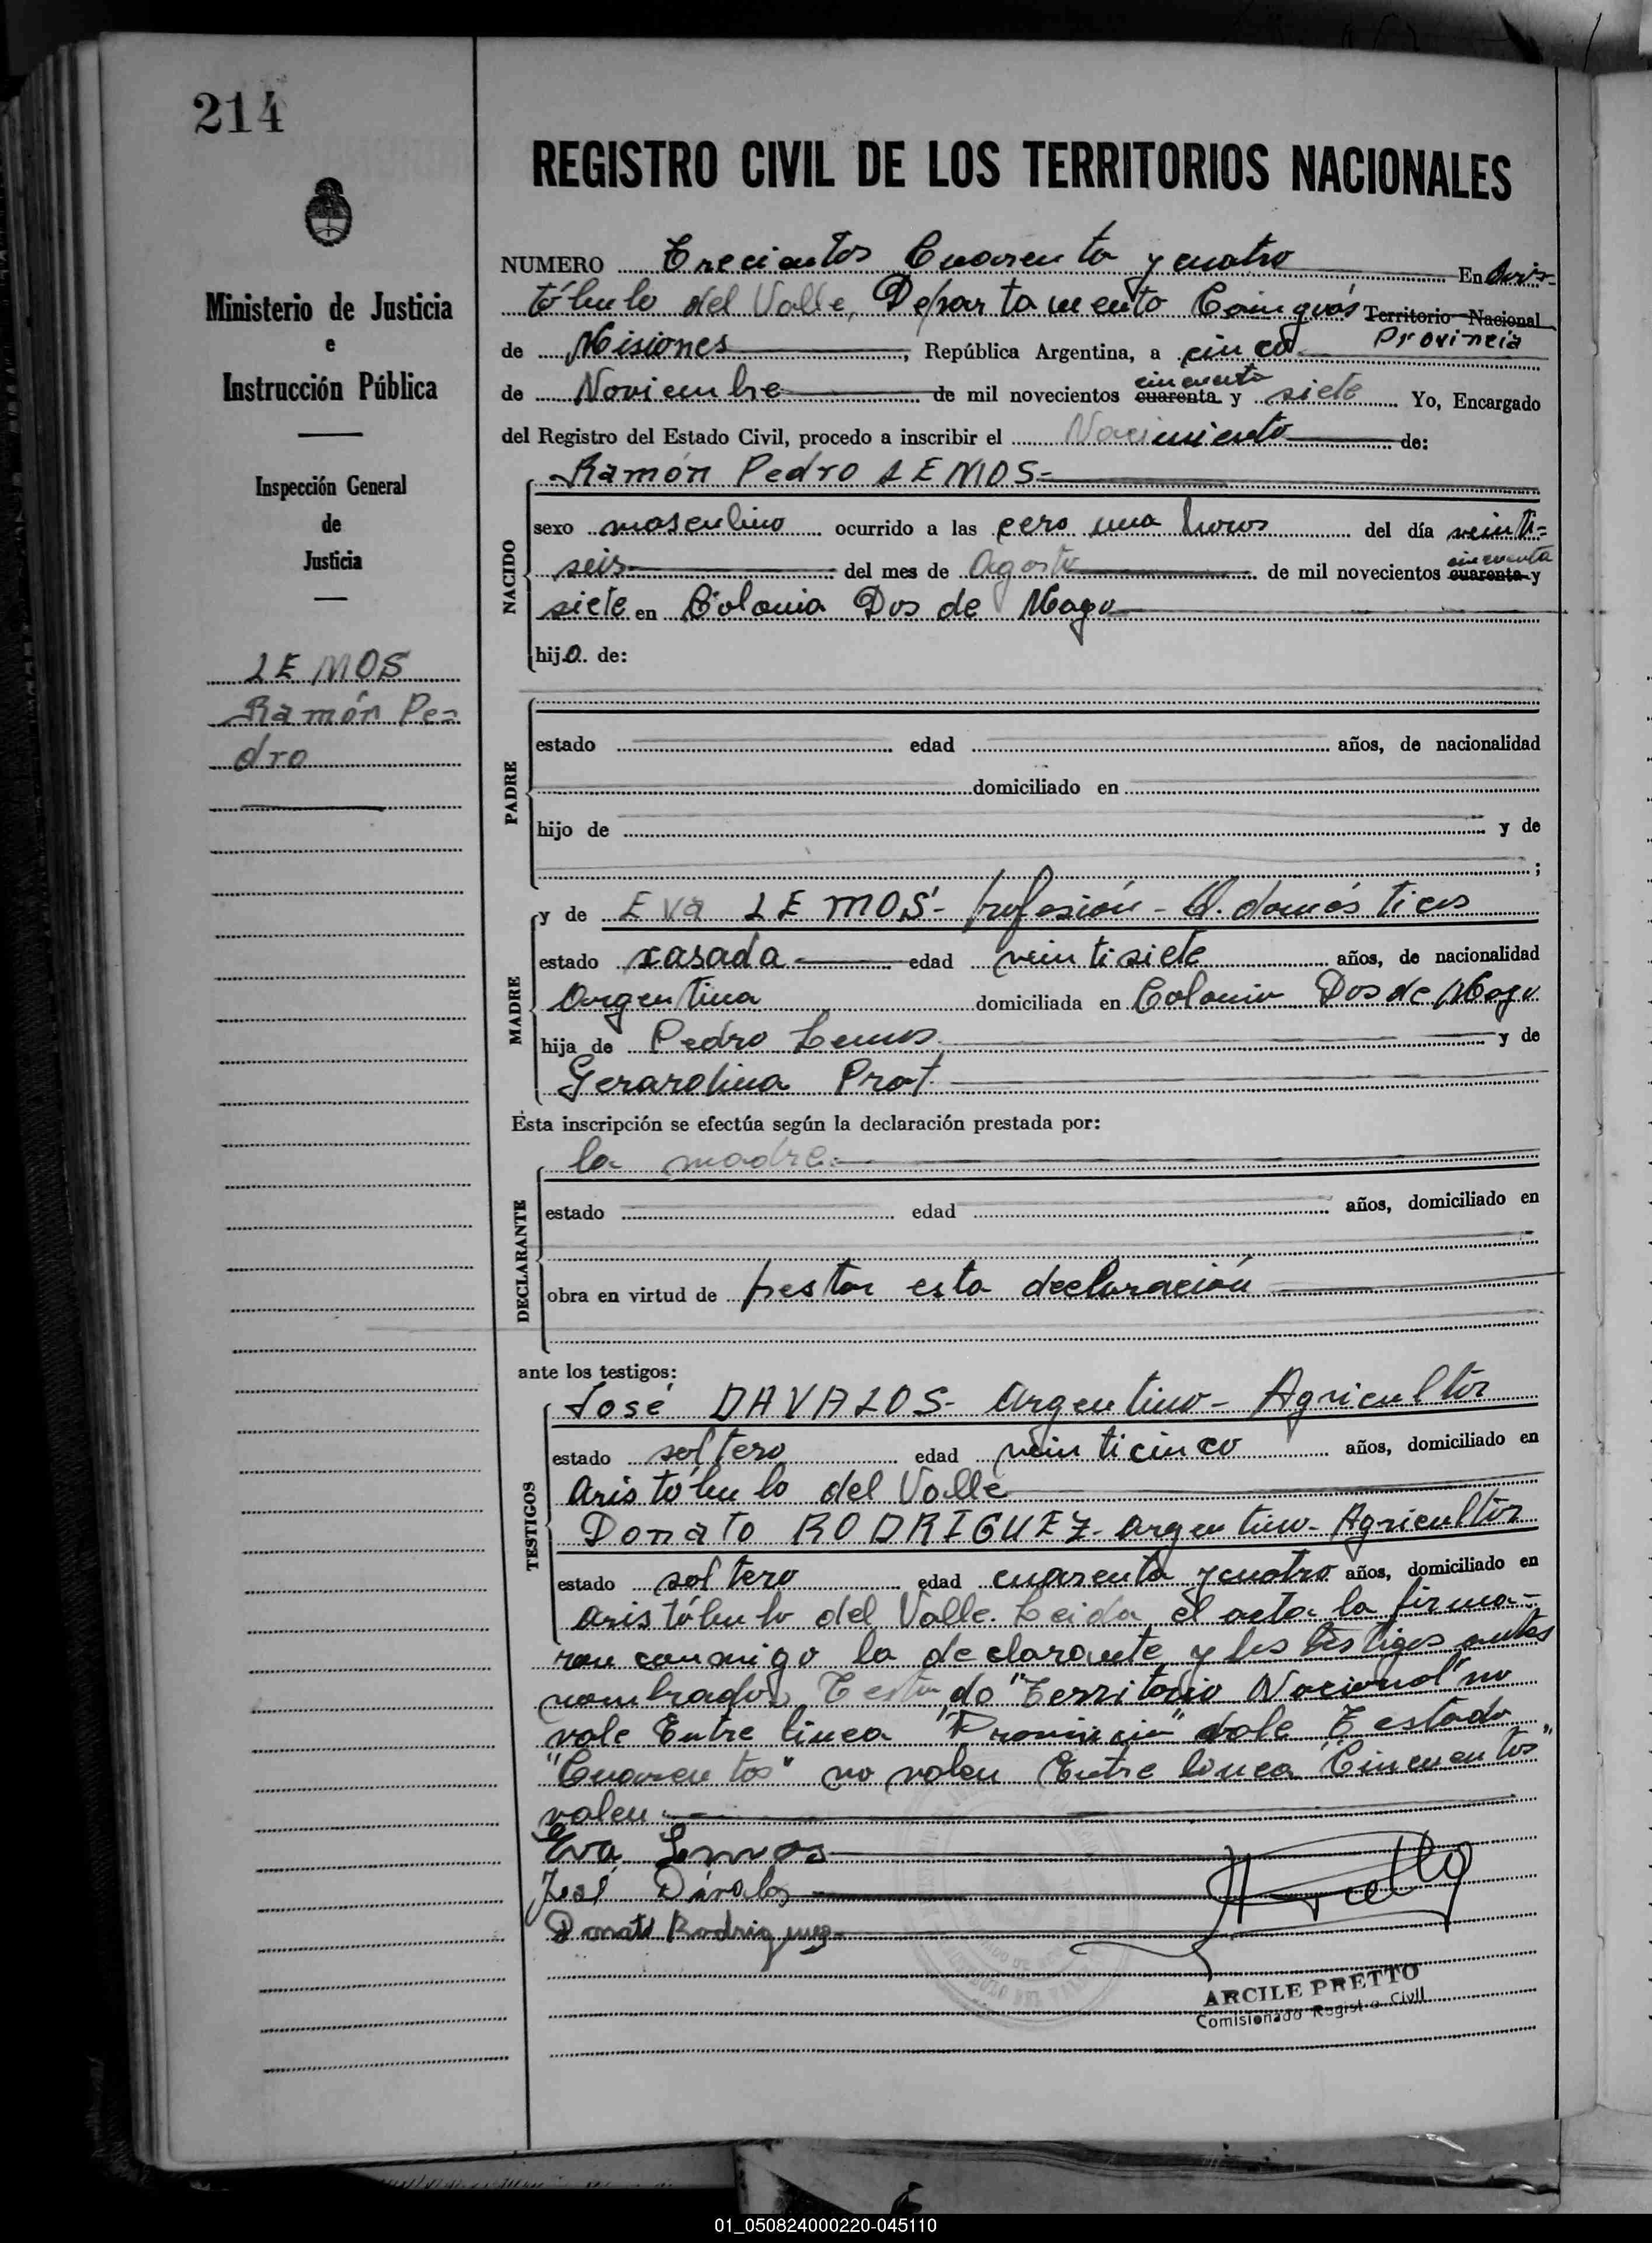 214
REGISTRO CIVIL DE LOS TERRITORIOS NACIONALES
Ministerio de Justicia
e
Instrucción Pública
Inspección General
de
Justicia
LEMOS
Ramón Pe=
dro
NUMERO Trecientos Cuarenta y cuatro En Aris=
tóbulo del Valle, Departamento Cainguás Territorio Nacional
Provincia
de Misiones, República Argentina, a cinco
cincuenta
de Noviembre de mil novecientos cuarenta y siete Yo, Encargado
del Registro del Estado Civil, procedo a inscribir el Nacimiento de:
NACIDO
Ramón Pedro LEMOS=
sexo masculino ocurrido a las cero una horas del día veinti=
cincuenta
seis del mes de Agosto de mil novecientos cuarenta y
siete en Colonia Dos de Mayo
hijo de:
PADRE
estado edad años, de nacionalidad
domiciliado en
hijo de y de
;
MADRE
y de Eva LEMOS- profesión - Q. domésticos
estado casada edad veintisiete años, de nacionalidad
Argentina domiciliada en Colonia Dos de Mayo
hija de Pedro Lemos y de
Gerardina Prat
Esta inscripción se efectúa según la declaración prestada por:
DECLARANTE
la madre
estado edad años, domiciliado en
obra en virtud de prestar esta declaración
ante los testigos:
TESTIGOS
José DAVALOS- Argentino- Agricultor
estado soltero edad veinticinco años, domiciliado en
Aristóbulo del Valle
Donato RODRIGUEZ- Argentino- Agricultor
estado soltero edad cuarenta y cuatro años, domiciliado en
Aristóbulo del Valle. Leida el acta la firma=
ron conmigo la declarante y los testigos antes
nombrados. Testado "Territorio Nacional" no
vale Entre linea "Provincia" vale Testado
"Cuarentas" no valen Entre linea "Cincuentas"
valen.
Eva Lemos
José Dávalos
Donato Rodriguez
ARCILE PRETTO
Comisionado Registro Civil
01_050824000220-045110